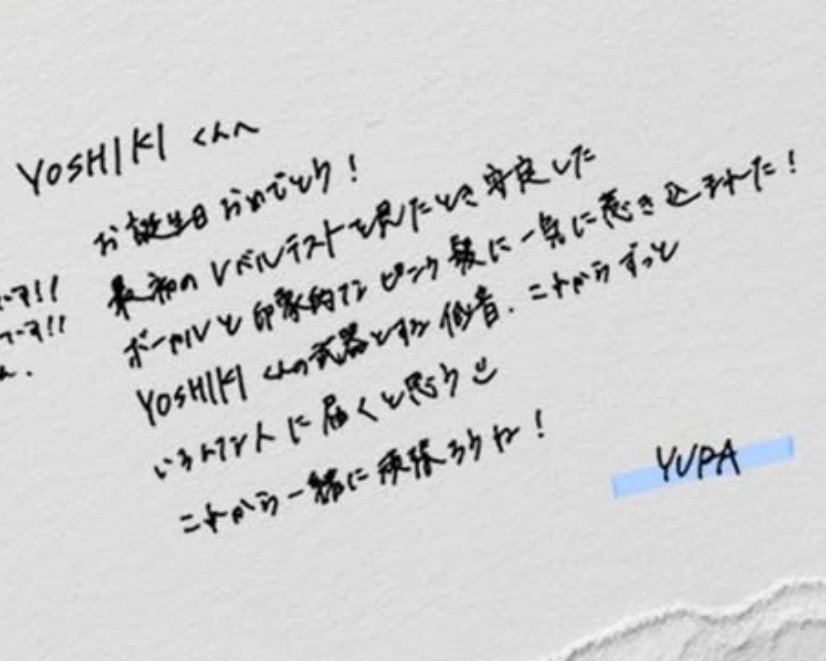 YOSHIKI くんへ
お誕生日おめでとう!
最初のレベルテストを見たとき安定した
ボーカルと印象的なピンク髪に一気に惹き込まれた!
YOSHIKI くんの武器とする低音、これからずっと
いろんな人に届くと思う
これから一緒に頑張ろうね!
YUPA
です!!
です!!